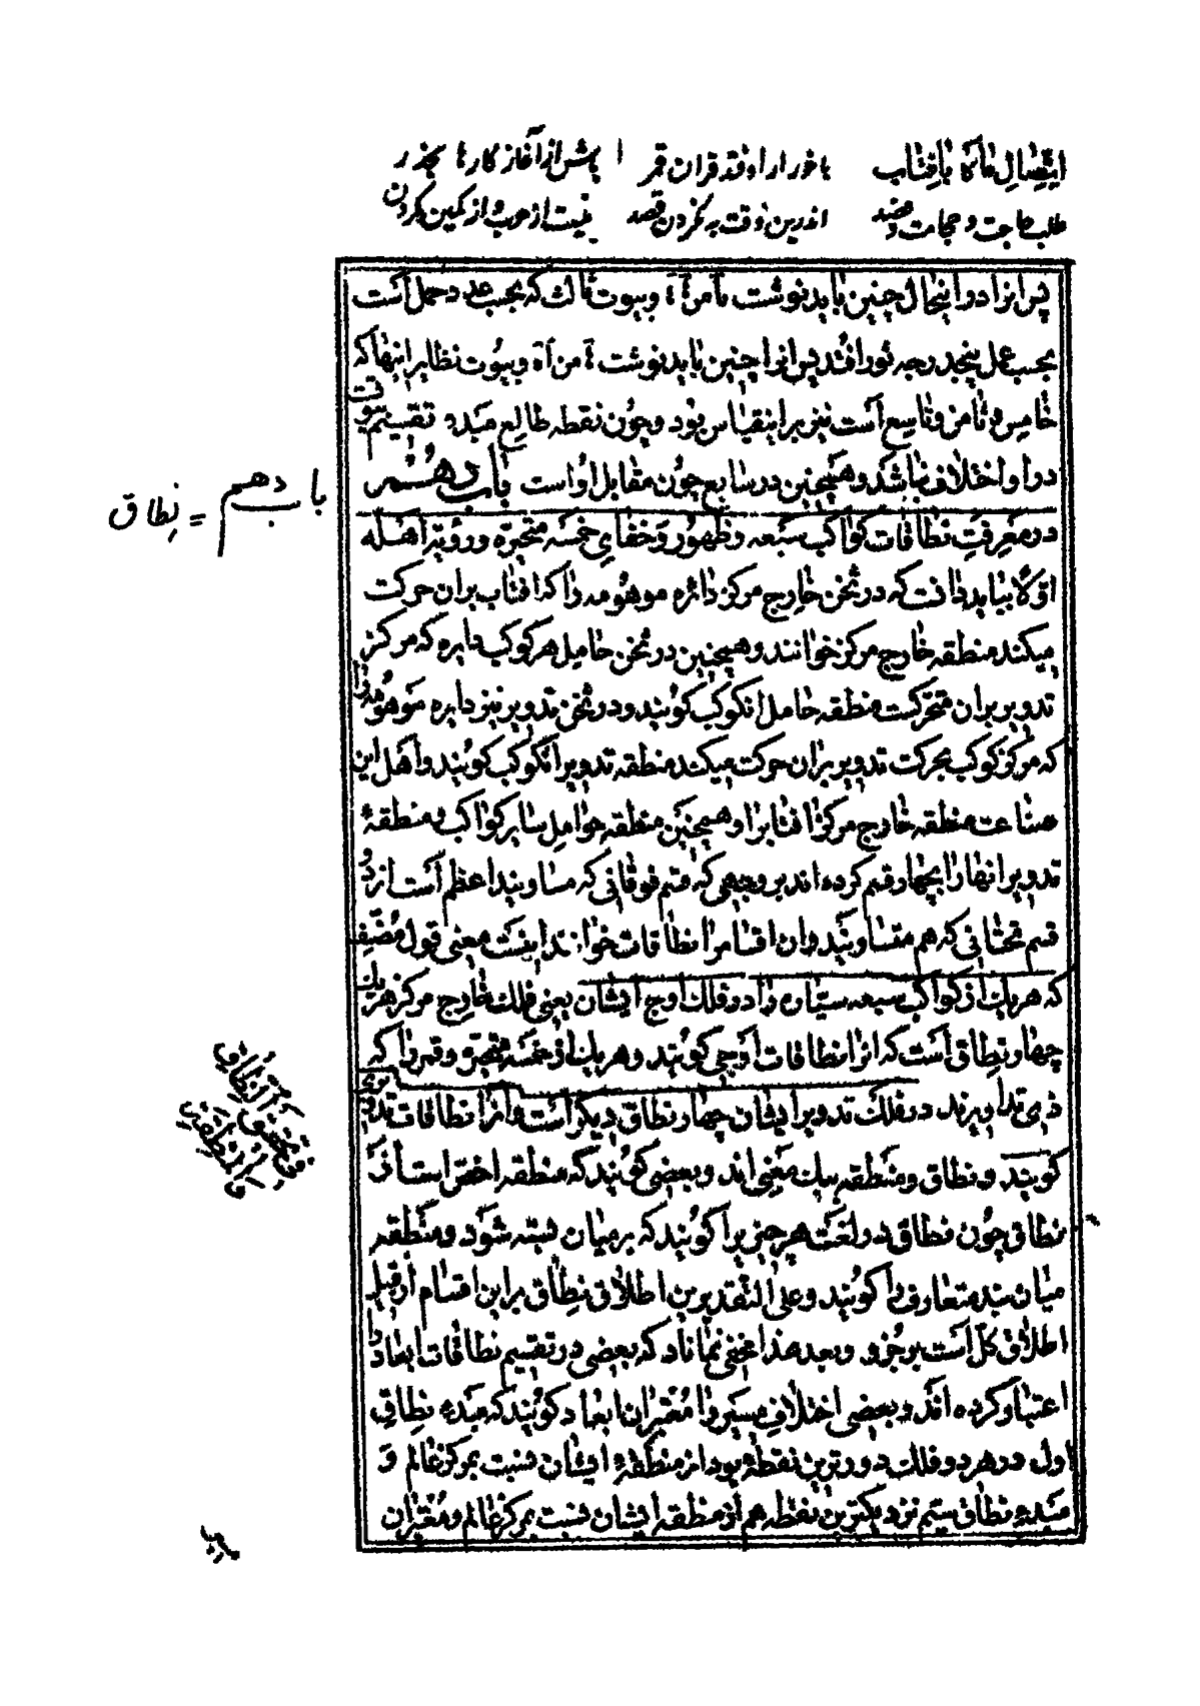 اتصال ماه بافتاب با خور ار اوفتد قران قمر پیش از آغاز کارها بحذر
طلب حاجت و حجامت و فصد اندرین وقت به نکردن قصد نیست از عیب و از کمین کردن
پس انرا درینحال چنین باید نوشت و بیوت ثالث که بحسب عدد حمل است
بحسب عمل پنجدرجه ثور افتد پس انرا چنین باید نوشت و بیوت نظایر اینها که
خامس و ثامن و تاسع است نیز براینقیاس بود و چون نقطه طالع مبدء تقسیم بیوت
در او اختلاف نباشد و همچنین در سابع چون مقابل اواست باب دهم
در معرفت نطاقات کواکب سبعه و ظهور و خفای خمسه متحیره و رؤیة اهله
اولا بباید دانست که در ثخن خارج مرکز دائره موهومه را که افتاب بران حرکت
میکند منطقه خارج مرکز خوانند و همچنین در ثخن حامل هر کوکب دایره که مرکز
تدویر بران متحرکست منطقه حامل انکوکب کویند و در ثخن تدویر نیز دایره موهومه را
که مرکز کوکب بحرکت تدویر بران حرکت میکند منطقه تدویر انکوکب کویند و اهل این
صناعت منطقه خارج مرکز افتابرا و همچنین منطقه حوامل سایر کواکب و منطقهٔ
تدویر انهارا بچهار قسم کرده اند بر وجهی که دو قسم فوقانی که مساویند اعظم است از دو
قسم تحتانی که هم متساویند و ان اقسامرا نطاقات خوانند اینست معنی قول مصنف
که هریک از کواکب سبعه سیّاره را در فلک اوج ایشان یعنی فلک خارج مرکز هریک
چهار نطاق است که انرا نطاقات اوجی کویند و هریک از خمسه متحیره و قمر را که
ذوی تداویرند در فلک تدویر ایشان چهار نطاق دیکر است و انرا نطاقات تدویری
کویند و نطاق و منطقه بیک معنی اند و بعضی کویند که منطقه اخص است از
نطاق چون نطاق در لغت هر چیزیرا کویند که بر میان بسته شود و منطقه
میان بند متعارف را کویند و علی التقدیرین اطلاق نطاق براین اقسام از قبیل
اطلاق کل است بر جزو و بعد هذا مخفی نماناد که بعضی در تقسیم نطاقات ابعاد را
اعتبار کرده اند و بعضی اختلاف مسیر را معتبران ابعاد کویند که مبدء نطاق
اول در هر دو فلک دورترین نقطه بود از منطقهٔ ایشان نسبت بمرکز عالم و
مبدء نطاق سیم نزدیکترین نقطه هم از منطقه ایشان نسبت بمرکز عالم و معتبران
باب دهم = نطاق